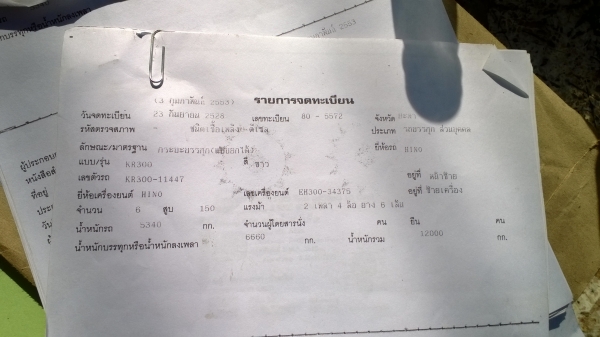 (3 กุมภาพันธ์ 2553) รายการจดทะเบียน
วันจดทะเบียน 23 กันยายน 2528 เลขทะเบียน 80 - 5572 จังหวัด
รหัสตรวจสภาพ - ชนิดเชื้อเพลิง ดีเซล ประเภท รถบรรทุก ส่วนบุคคล
ลักษณะ/มาตรฐาน กระบะบรรทุก ยี่ห้อรถ HINO
แบบ/รุ่น KR300 สี ขาว
เลขตัวรถ KR300-11447 อยู่ที่
ยี่ห้อเครื่องยนต์ HINO เลขเครื่องยนต์ EH300-34375 อยู่ที่ ซ้ายเครื่อง
จำนวน 6 สูบ 150 แรงม้า 2 เพลา 4 ล้อ ยาง 6 เส้น
น้ำหนักรถ 5340 กก. จำนวนผู้โดยสารนั่ง คน ยืน คน
น้ำหนักบรรทุกหรือน้ำหนักลงเพลา 6660 กก. น้ำหนักรวม 12000 กก.
ผู้ประกอบ
หนังสือสำ
ที่อยู่